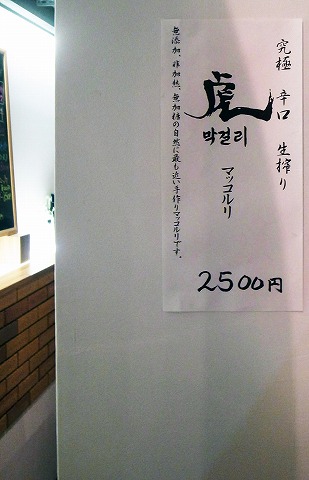 究極 辛口 生搾り
虎
막걸리
マッコルリ
無添加、非加熱、無加糖の自然に最も近い手作りマッコルリです。
2500円